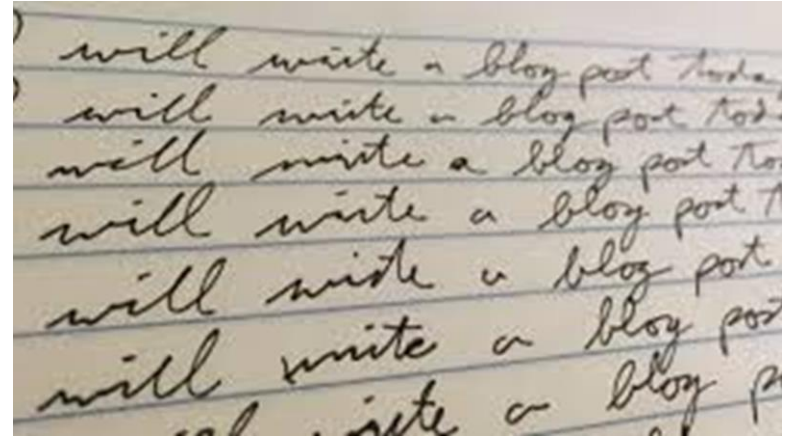 will write a blog post toda
will write a blog post tod
will write a blog post to
will write a blog post t
will write a blog post
will write a blog pos
write a blog p